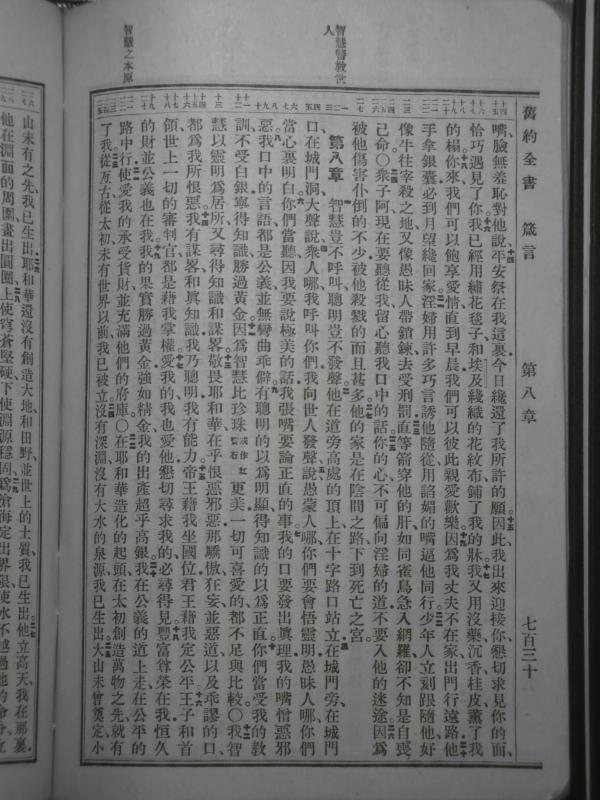 舊約全書 箴言 第八章 七百三十
智慧警敎世人
智慧之本原
嘴、臉無羞恥對他說平安祭在我這裏今日纔還了我所許的願因此我出來迎接你懇切求見你的面、
恰巧遇見了你我已經用繡花毯子和埃及綫織的花紋布鋪了我的牀我又用沒藥沉香桂皮薰了我
的榻你來我們可以飽享愛情直到早晨我們可以彼此親愛歡樂因爲我丈夫不在家出門行遠路他
手拿銀囊必到月望纔回家淫婦用許多巧言誘他隨從用諂媚的嘴逼他同行少年人立刻跟隨他好
像牛往宰殺之地又像愚昧人帶鎖鍊去受刑罰直等箭穿他的肝如同雀鳥急入網羅卻不知是自喪
己命〇衆子阿現在要聽從我留心聽我口中的話你的心不可偏向淫婦的道不要入他的迷途因爲
被他傷害仆倒的不少被他殺戮的而且甚多他的家是在陰間之路下到死亡之宮
第八章 智慧豈不呼叫聰明豈不發聲他在道旁高處的頂上在十字路口站立在城門旁在城門
口、在城門洞大聲說衆人哪我呼叫你們我向世人發聲說愚蒙人哪你們要會悟靈明愚昧人哪你們
當心裏明白你們當聽因我要說極美的話我張嘴要論正直的事我的口要發出眞理我的嘴憎惡邪
惡我口中的言語都是公義並無彎曲乖僻有聰明的以爲明顯得知識的以爲正直你們當受我的敎
訓不受白銀寧得知識勝過黃金因爲智慧比珍珠或作紅寶石更美一切可喜愛的都不足與比較〇我智
慧以靈明爲居所又尋得知識和謀畧敬畏耶和華在乎恨惡邪惡那驕傲狂妄並惡道以及乖謬的口、
都爲我所恨惡我有謀畧和眞知識我乃聰明我有能力帝王藉我坐國位君王藉我定公平王子和首
領世上一切的審判官都是藉我掌權愛我的我也愛他懇切尋求我的必尋得見豐富尊榮在我恒久
的財並公義也在我我的果實勝過黃金強如精金我的出產超乎高銀我在公義的道上走在公平的
路中行使愛我的承受貨財並充滿他們的府庫〇在耶和華造化的起頭在太初創造萬物之先就有
了我從亙古從太初未有世界以前我已被立沒有深淵沒有大水的泉源我已生出大山未曾奠定小
山未有之先我已生出耶和華還沒有創造大地和田野並世上的土質我已生出他立高天我在那裏
他在淵面的周圍畫出圓圈上使穹蒼堅硬下使淵源穩固爲滄海定出界限使水不越過他的命令立